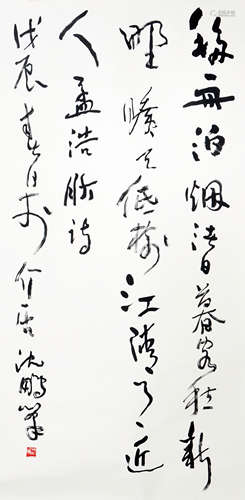 移舟泊烟渚日暮客愁新
野曠天低樹江清月近
人孟浩然诗
戊辰春日於介居沈鹏笔